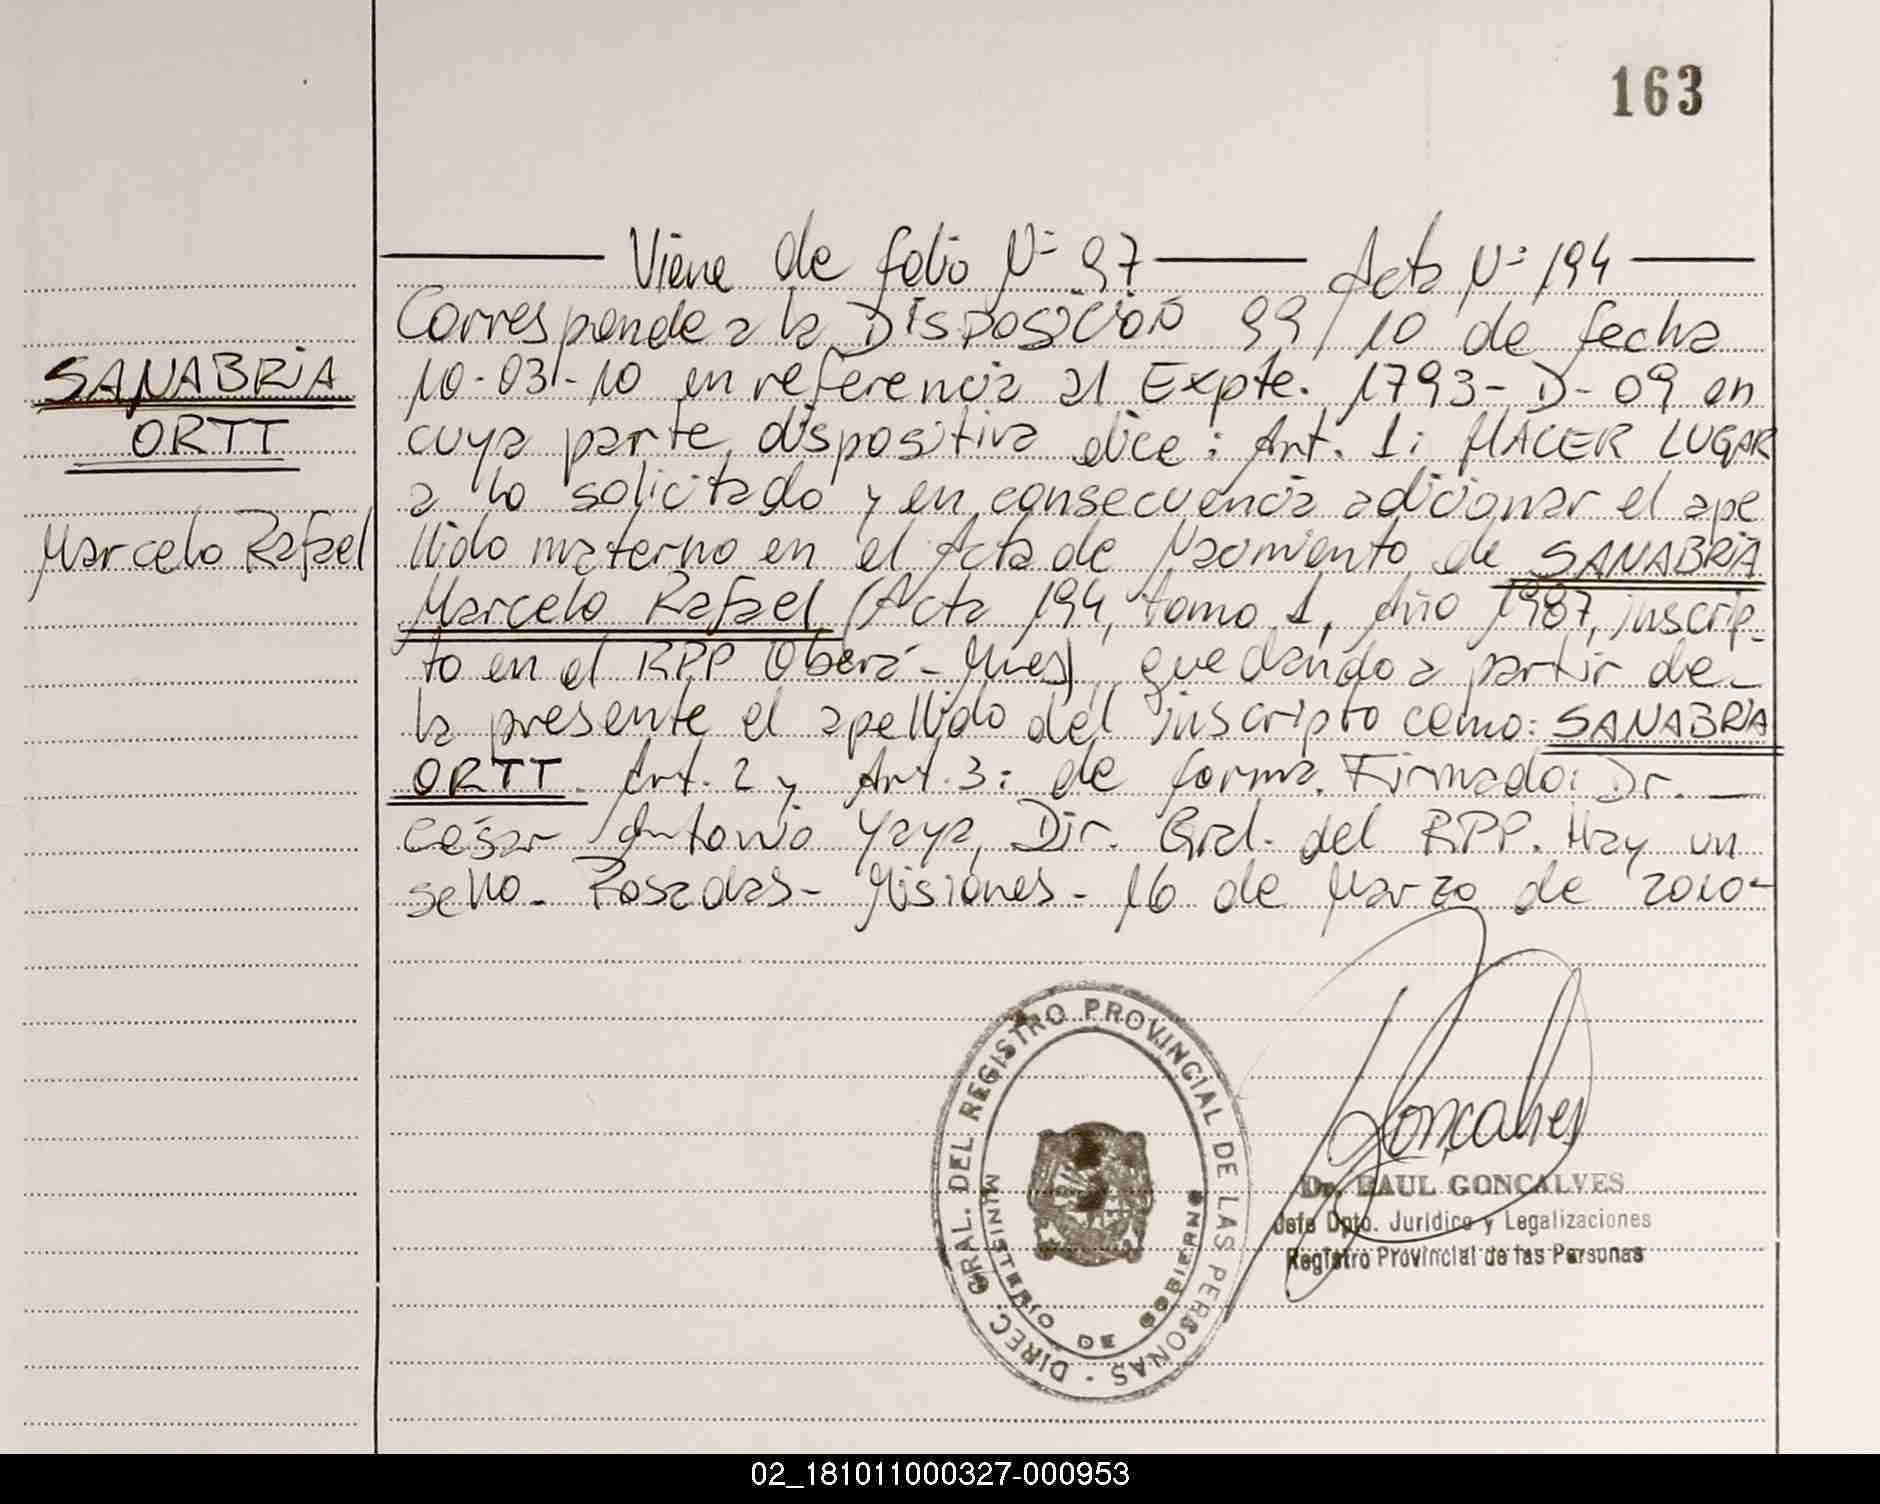 163
Viene de folio Nº 97 Acta Nº 194
SANABRIA
ORTT
Marcelo Rafael
Corresponde a la DISPOSICION 99/10 de fecha
10-03-10 en referencia al Expte. 1793-D-09 en
cuya parte dispositiva dice: Art. 1: HACER LUGAR
a lo solicitado y en consecuencia adicionar el ape
llido materno en el Acta de Nacimiento de SANABRIA
Marcelo Rafael (Acta 194, tomo 1, Año 1987, inscrip-
to en el RPP Oberá-Mnes) quedando a partir de-
la presente el apellido del inscripto como: SANABRIA
ORTT. Art. 2 y Art. 3: de forma. Firmado: Dr. —
César Antonio Yaya, Dir. Gral. del RPP. Hay un
sello. Posadas- Misiones- 16 de Marzo de 2010-
DIREC. GRAL. DEL REGISTRO PROVINCIAL DE LAS PERSONAS -
MINISTERIO DE GOBIERNO
Goncalves
Dr. RAUL GONCALVES
Jefe Dpto. Jurídico y Legalizaciones
Registro Provincial de las Personas
02_181011000327-000953